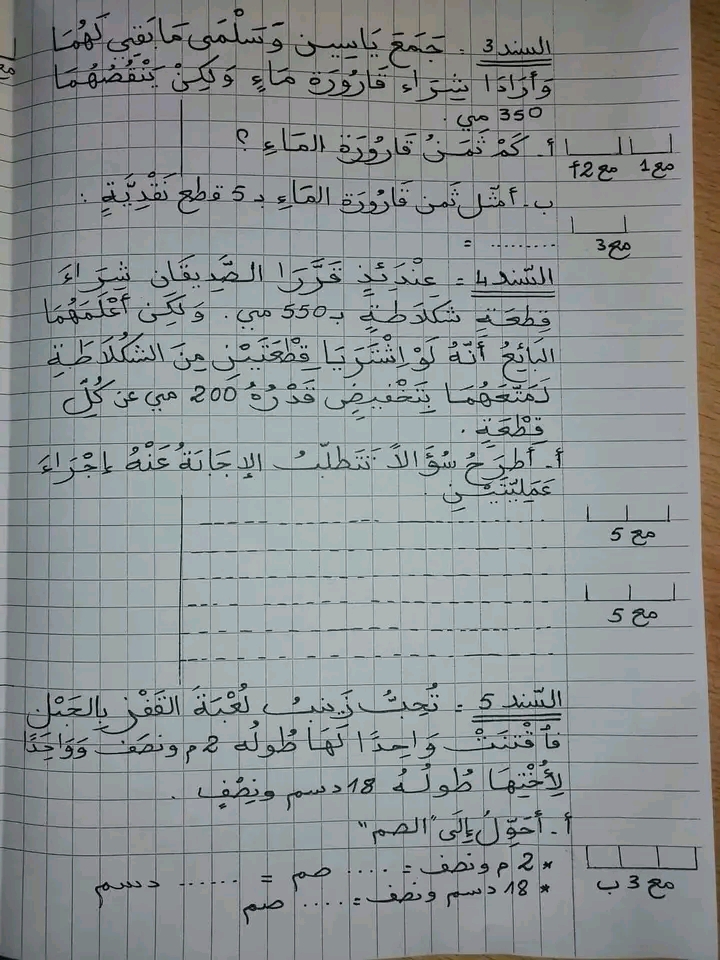 السند3 . جَمَعَ يَاسِين وَسَلْمَى مَا بَقِيَ لَهُمَا
وَأَرَادَا شِرَاء قَارُورَة مَاءٍ وَلَكِنْ يَنْقُصُهُمَا
350 مي.
أ- كَمْ ثَمَنُ قَارُورَةِ المَاءِ ؟
مع1 مع2أ
ب- أمثّل ثَمن قَارُورَةِ المَاءِ بـ 5 قطع نَقْدِيَّةٍ :
= ..........
مع3
السّند4 = عِنْدَئِذٍ قَرَّرَا الصَّدِيقَان شِرَاءَ
قِطعَةِ شكلَاطَةٍ بـ 550 مي. وَلَكِن أَعْلَمَهُمَا
البَائِعُ أَنَّهُ لَوْ اِشْتَرَيَا قِطْعَتَيْنِ مِنَ الشكُلَاطَةِ
لَمَتَّعَهُمَا بِتَخْفِيضٍ قَدْرُهُ 200 مي عن كُلِّ
قِطْعَةٍ .
أ- أَطْرَحُ سُؤَالاً تَتَطلَّبُ الإجَابَةُ عَنْهُ إجْرَاءَ
عَمَلِيَّتَيْنِ.
مع5
مع5
السّند5 = تُحِبُّ زَيْنبُ لُعْبَةَ القَفْزِ بِالحَبْلِ
فَاُقْتَنَتْ وَاحِدًا لَهَا طُولُه 2م ونصَف وَوَاحِدًا
لِأُخْتِهَا طُولُهُ 18دسم ونِصْفٍ .
أ- أُحَوِّلُ إلَى "الصم"
* 2م ونصف = .... صم = ...... دسم
مع3ب
* 18 دسم ونصف = .... صم